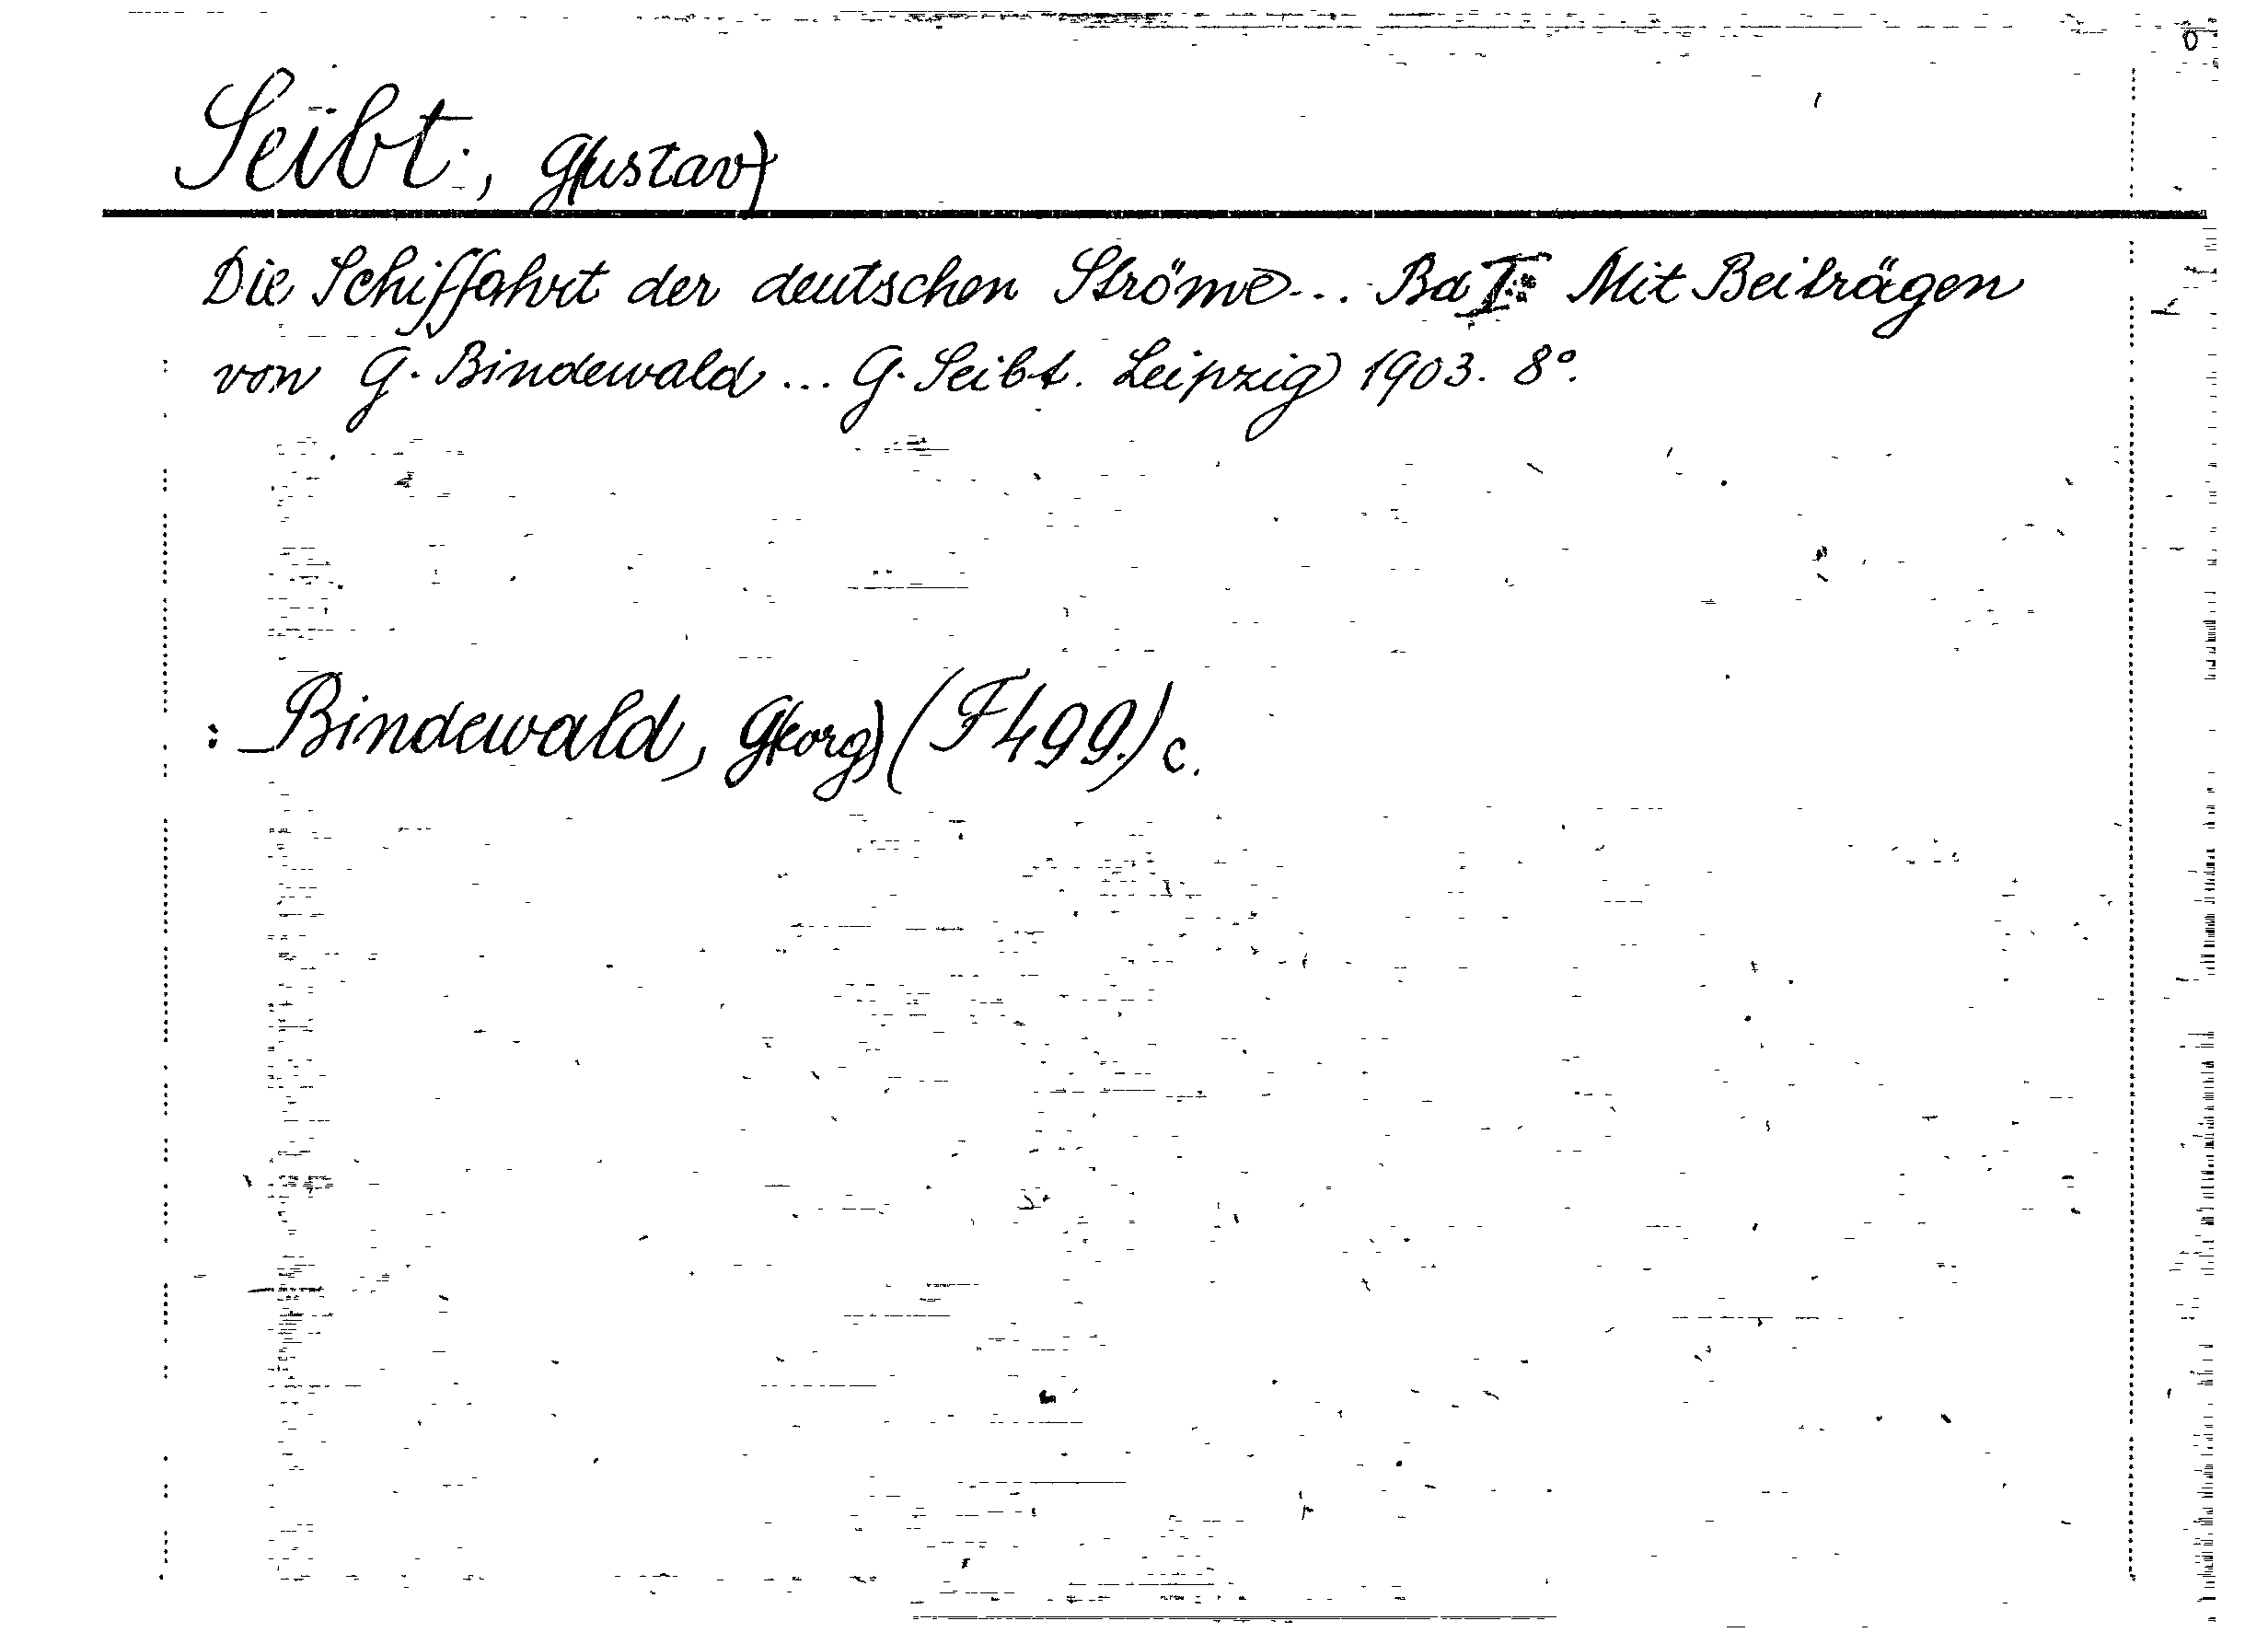 Seibt, G(ustav)
Die Schiffahrt der deutschen Ströme... Bd I: Mit Beiträgen
von G. Bindewald ... G. Seibt. Leipzig 1903. 8°.
: Bindewald, G(eorg) (F 499.) c.